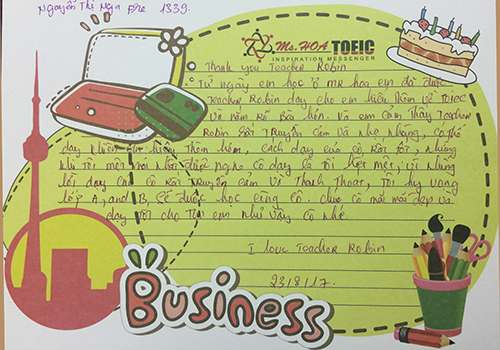 Nguyễn Thị Nga Pre 1339.
Ms. HOA TOEIC
INSPIRATION MESSENGER
- Thank you Teacher Robin
- Từ ngày em học ở MR Hoa em đã được
Teacher Robin dạy cho em hiểu thêm về TOIEC
và nắm rõ bài hơn. Và em cảm thấy Teacher
Robin rất Truyền cảm và nhẹ nhàng, có thể
dạy khiến em hiểu thêm hơn, cách dạy của cô rất tốt, những
khi tôi mệt mỏi khi được nghe cô dạy là tôi hết mệt, vì những
lời dạy của cô rất truyền cảm và Thanh Thoát, Tôi hy vọng
lớp A, and B, sẽ được học cùng cô. chúc cô mãi mãi đẹp và
dạy tốt cho Thế em như vậy cô nhé
I love Teacher Robin
23/8/17.
Business